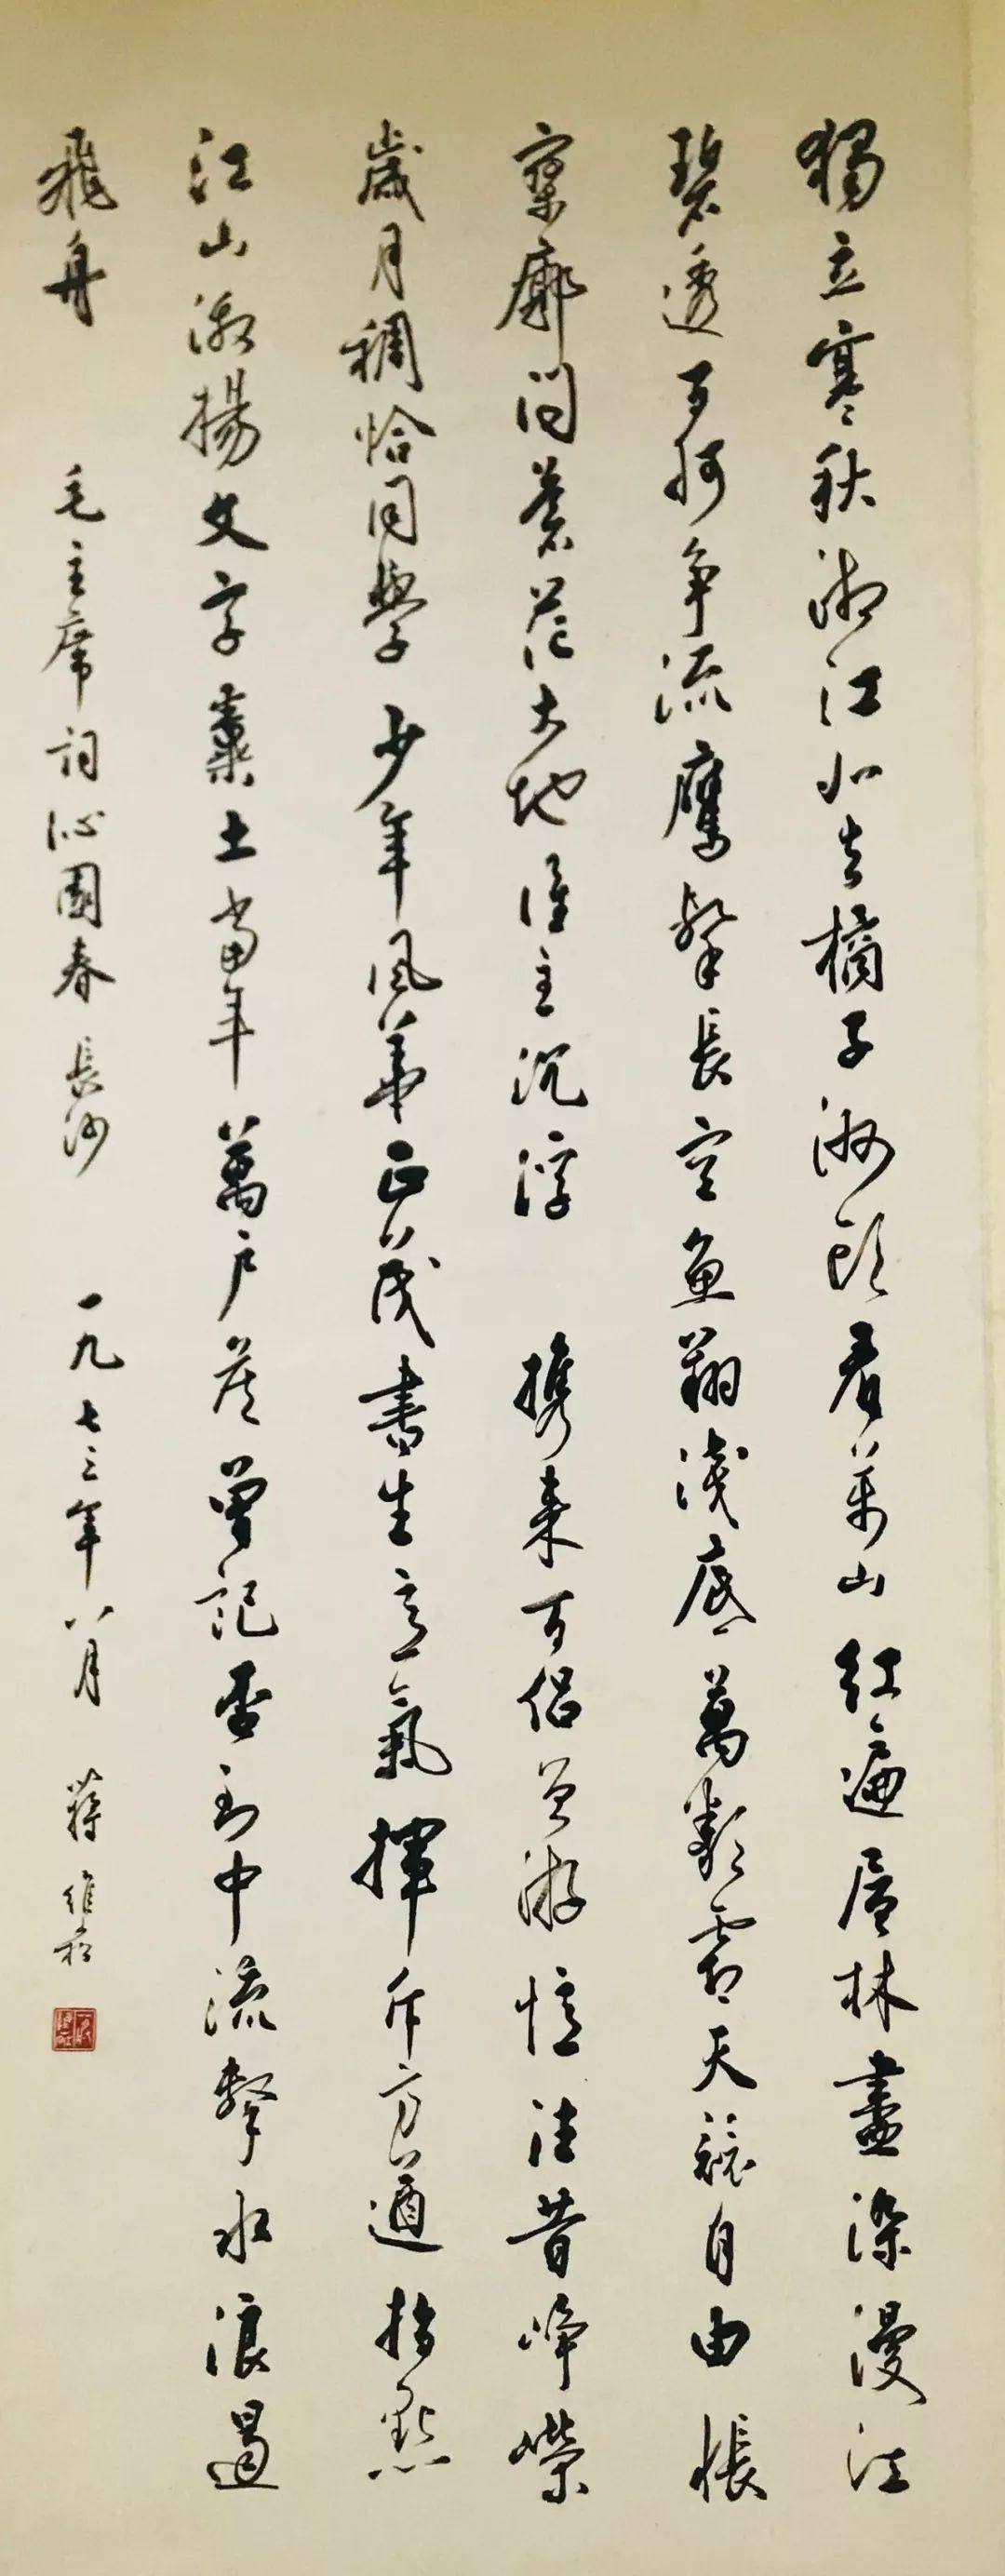 獨立寒秋湘江北去橘子洲頭看萬山紅遍層林盡染漫江
碧透百舸争流鷹擊長空魚翔淺底萬類霜天競自由悵
寥廓問蒼茫大地誰主沉浮 携来百侣曾游憶往昔崢嶸
歲月稠恰同學少年風華正茂書生意氣揮斥方遒指點
江山激揚文字糞土當年萬户侯曾記否到中流擊水浪遏
飛舟 毛主席詞沁園春長沙 一九七三年八月 蔣維崧